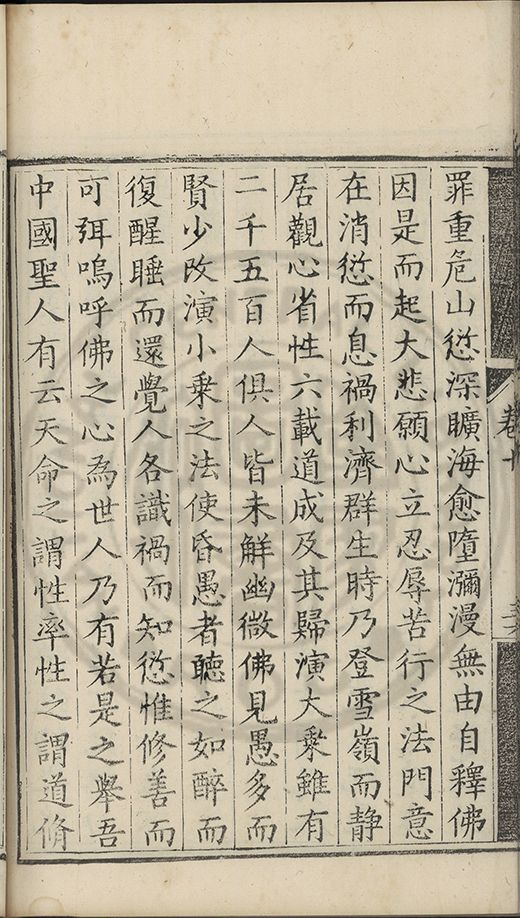 罪重危山愆深曠海愈墮瀰漫無由自釋佛
因是而起大悲願心立忍辱苦行之法門意
在消愆而息禍利濟群生時乃登雪嶺而静
居觀心省性六載道成及其歸演大乗雖有
二千五百人俱人皆未解幽微佛見愚多而
賢少改演小乗之法使昏愚者聽之如醉而
復醒睡而還覺人各識禍而知愆惟修善而
可弭嗚呼佛之心為世人乃有若是之舉吾
中國聖人有云天命之謂性率性之謂道脩